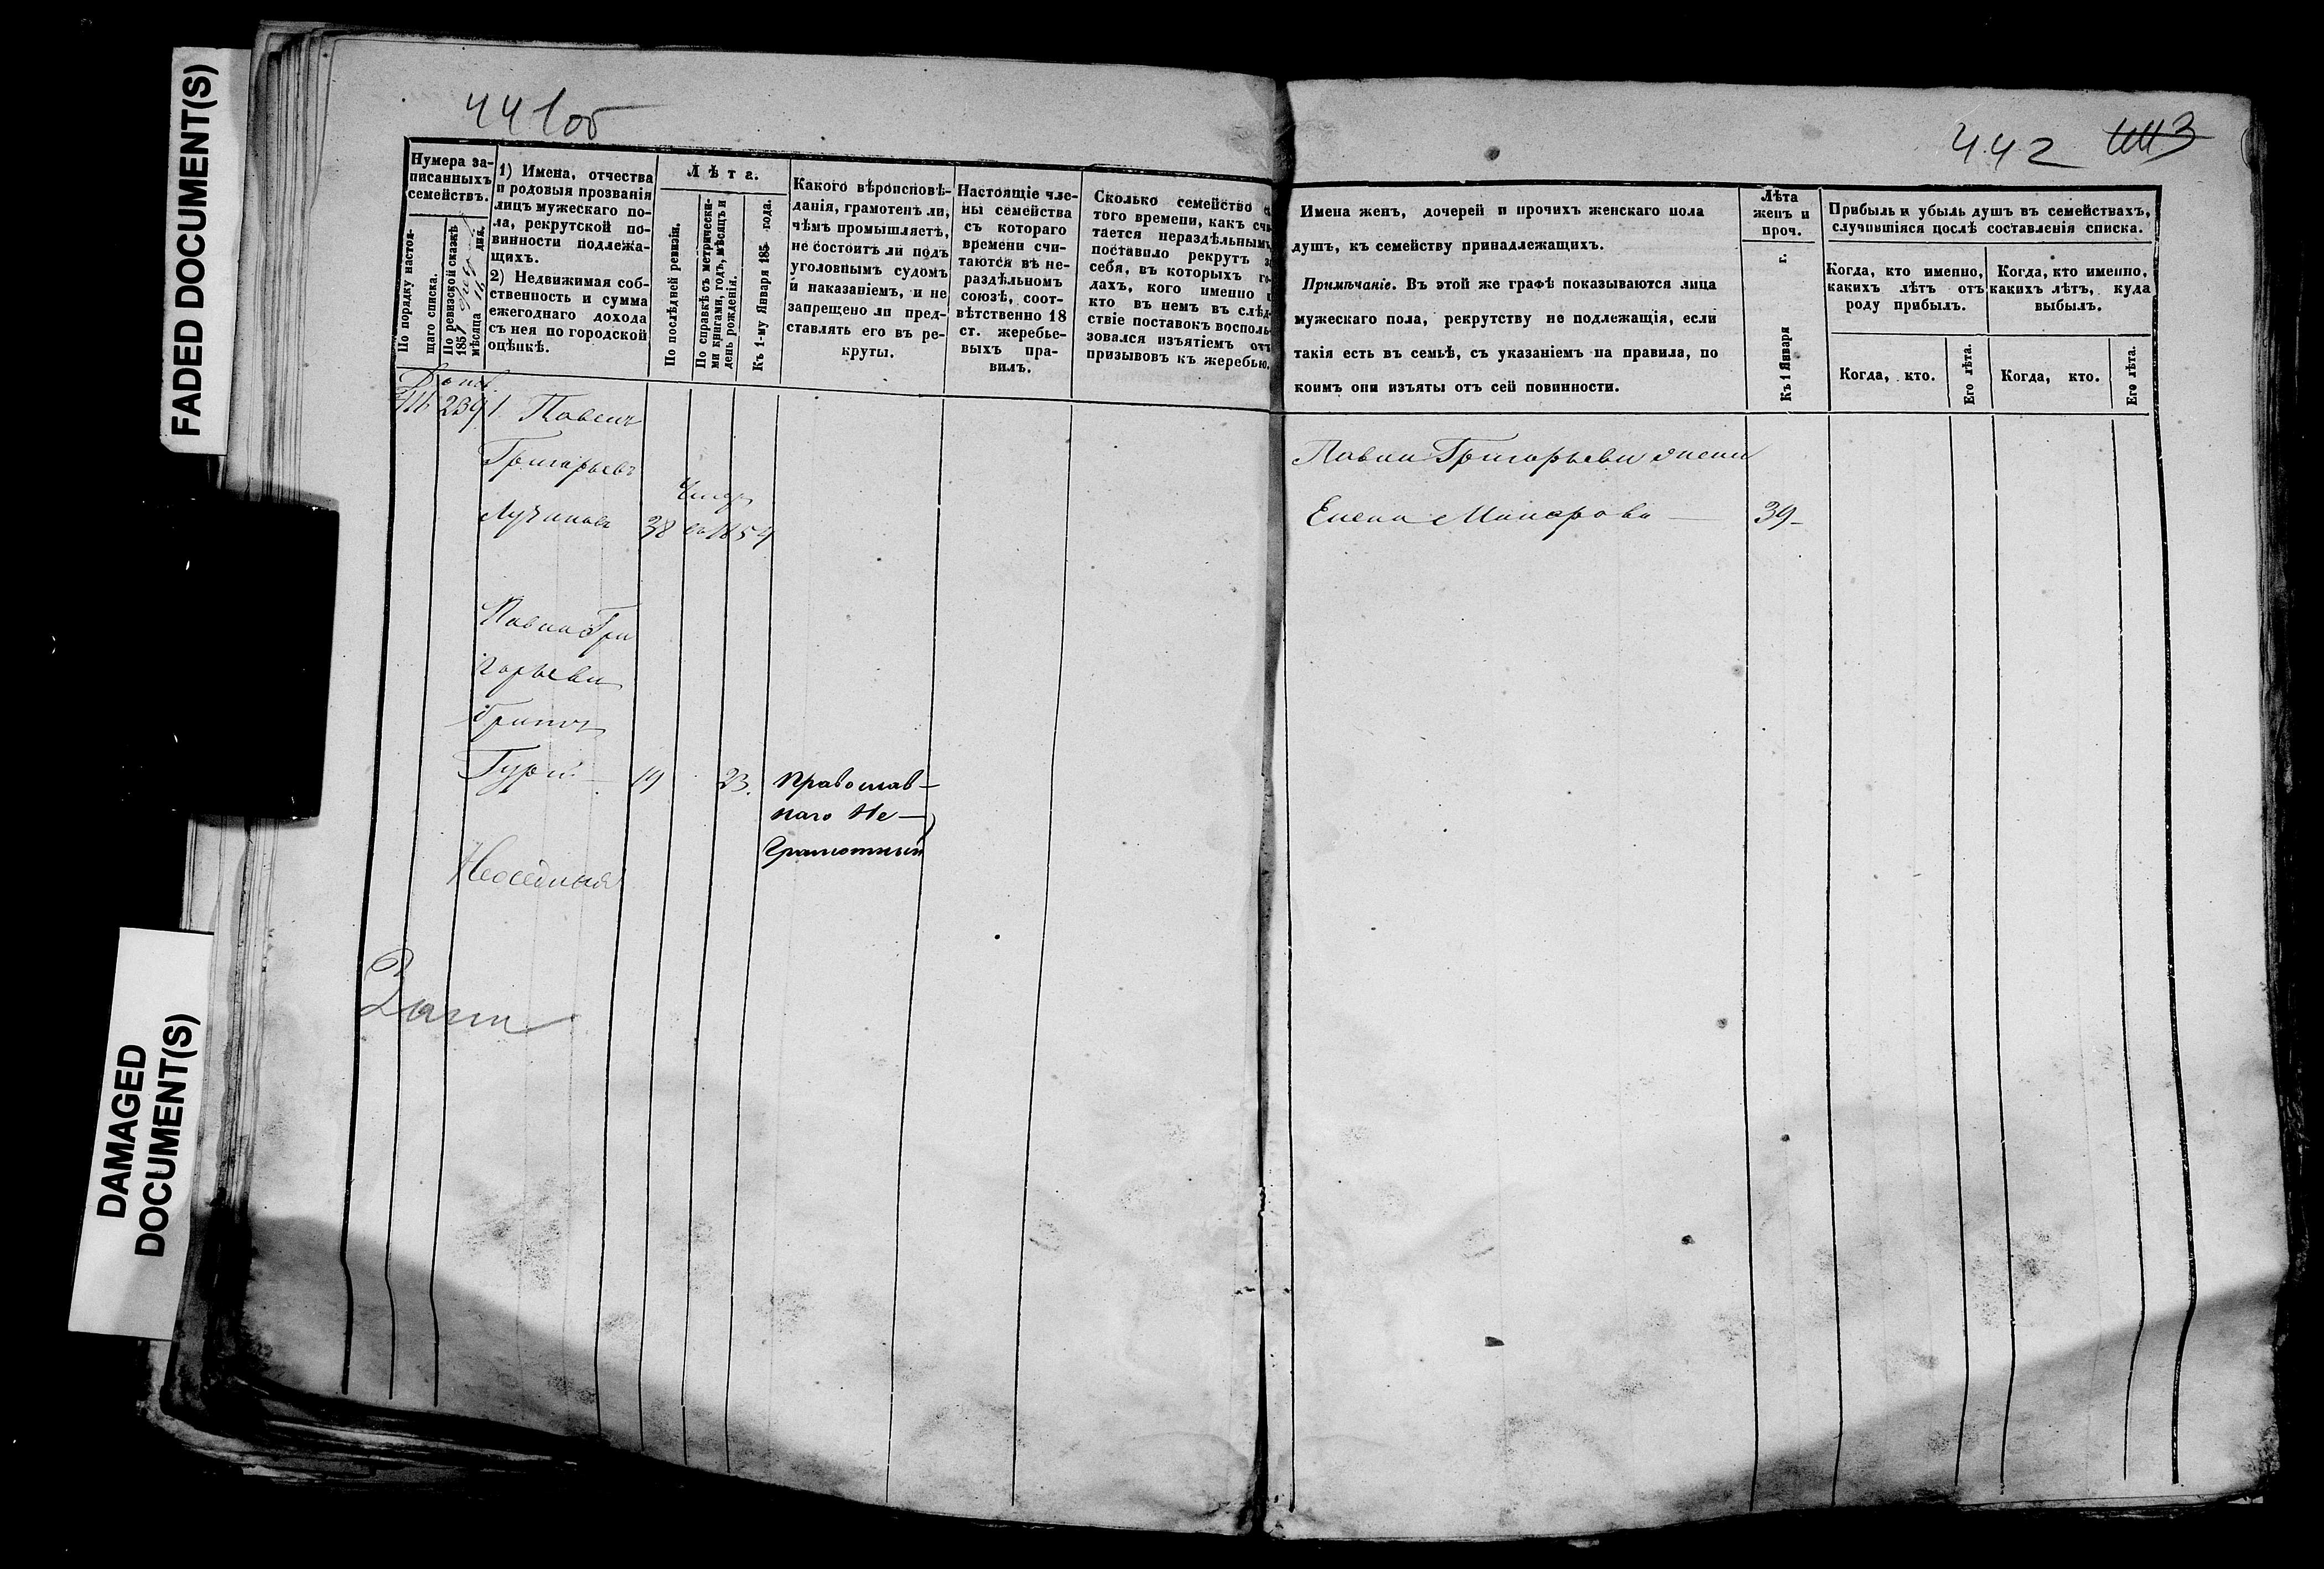 FADED DOCUMENT(S)
DAMAGED
DOCUMENT(S)
441об
Нумера за-
писанныхъ
семействъ.
По порядку настоя-
щаго списка.
По ревизской сказкѣ
185
мѣсяца
дня.
1) Имена, отчества
и родовыя прозванія
лицъ мужескаго по-
ла, рекрутской по-
винности подлежа-
щихъ.
2) Недвижимая соб-
ственность и сумма
ежегоднаго дохода
съ нея по городской
оцѣнкѣ.
Лѣта.
По послѣдней ревизіи.
По справкѣ съ метрически-
ми книгами, годъ, мѣсяцъ и
день рожденія.
Къ 1-му Января 185 года.
Какого вѣроисповѣ-
данія, грамотенъ ли,
чѣмъ промышляетъ,
не состоитъ ли подъ
уголовнымъ судомъ
и наказаніемъ, и не
запрещено ли пред-
ставлять его въ ре-
круты.
Настоящіе чле-
ны семейства
съ котораго
времени счи-
таются въ не-
раздѣльномъ
союзѣ, соот-
вѣтственно 18
ст. жеребье-
выхъ пра-
вилъ.
Сколько семейство с
того времени, какъ счи
тается нераздѣльнымъ,
поставило рекрутъ за
себя, въ которыхъ го-
дахъ, кого именно и
кто въ немъ въ слѣд-
ствіе поставокъ восполь-
зовался изъятіемъ отъ
призывовъ къ жеребью.
239 1. Павелъ
Григорьевъ
Умеръ
38 въ 1859
Павла Гри
горьева
братъ
Гурій — 19 23. Православ-
наго Не-
грамотный
442
Имена женъ, дочерей и прочихъ женскаго пола
душъ, къ семейству принадлежащихъ.
Примѣчаніе. Въ этой же графѣ показываются лица
мужескаго пола, рекрутству не подлежащія, если
такія есть въ семьѣ, съ указаніемъ на правила, по
коимъ они изъяты отъ сей повинности.
Лѣта
женъ и
проч.
Къ 1 Января г.
Прибыль и убыль душъ въ семействахъ,
случившіяся послѣ составленія списка.
Когда, кто именно,
какихъ лѣтъ отъ
роду прибылъ.
Когда, кто именно,
какихъ лѣтъ, куда
выбылъ.
Когда, кто.
Его лѣта.
Когда, кто.
Его лѣта.
Павла Григорьева жена
Елена — 39 -